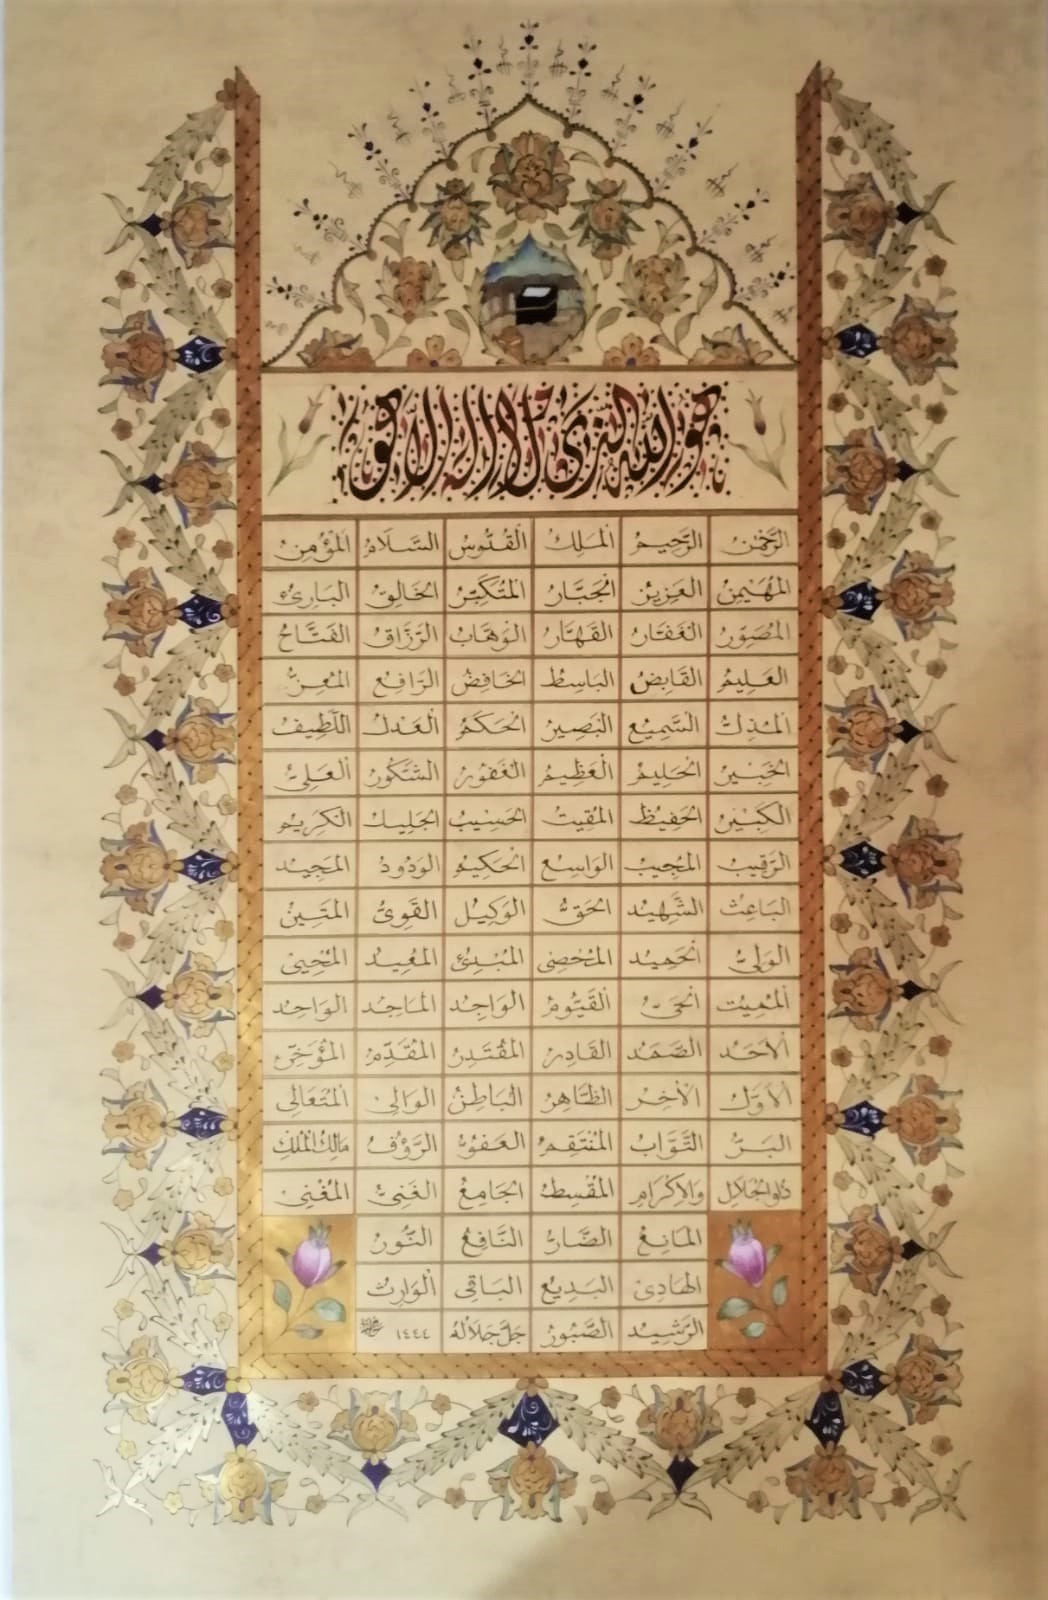 هو الله الذي لا اله الا هو
الرَّحْمٰنُ الرَّحِيمُ المَلِكُ القُدُّوسُ السَّلَامُ المُؤْمِنُ
المُهَيْمِنُ العَزِيزُ الجَبَّارُ المُتَكَبِّرُ الخَالِقُ البَارِئُ
المُصَوِّرُ الغَفَّارُ القَهَّارُ الوَهَّابُ الرَّزَّاقُ الفَتَّاحُ
العَلِيمُ القَابِضُ البَاسِطُ الخَافِضُ الرَّافِعُ المُعِزُّ
المُذِلُّ السَّمِيعُ البَصِيرُ الحَكَمُ العَدْلُ اللَّطِيفُ
الخَبِيرُ الحَلِيمُ العَظِيمُ الغَفُورُ الشَّكُورُ العَلِيُّ
الكَبِيرُ الحَفِيظُ المُقِيتُ الحَسِيبُ الجَلِيلُ الكَرِيمُ
الرَّقِيبُ المُجِيبُ الوَاسِعُ الحَكِيمُ الوَدُودُ المَجِيدُ
البَاعِثُ الشَّهِيدُ الحَقُّ الوَكِيلُ القَوِيُّ المَتِينُ
الوَلِيُّ الحَمِيدُ المُحْصِي المُبْدِئُ المُعِيدُ المُحْيِي
المُمِيتُ الحَيُّ القَيُّومُ الوَاجِدُ المَاجِدُ الوَاحِدُ
الأَحَدُ الصَّمَدُ القَادِرُ المُقْتَدِرُ المُقَدِّمُ المُؤَخِّرُ
الأَوَّلُ الْآخِرُ الظَّاهِرُ البَاطِنُ الوَالِي المُتَعَالِي
البَرُّ التَّوَّابُ المُنْتَقِمُ العَفُوُّ الرَّؤُفُ مَالِكُ المُلْكِ
ذُو الجَلَالِ وَالْإِكْرَامِ المُقْسِطُ الجَامِعُ الغَنِيُّ المُغْنِي
المَانِعُ الضَّارُّ النَّافِعُ النُّورُ
الهَادِي البَدِيعُ البَاقِي الوَارِثُ
الرَّشِيدُ الصَّبُورُ جَلَّ جَلَالُهُ ١٤٤٤